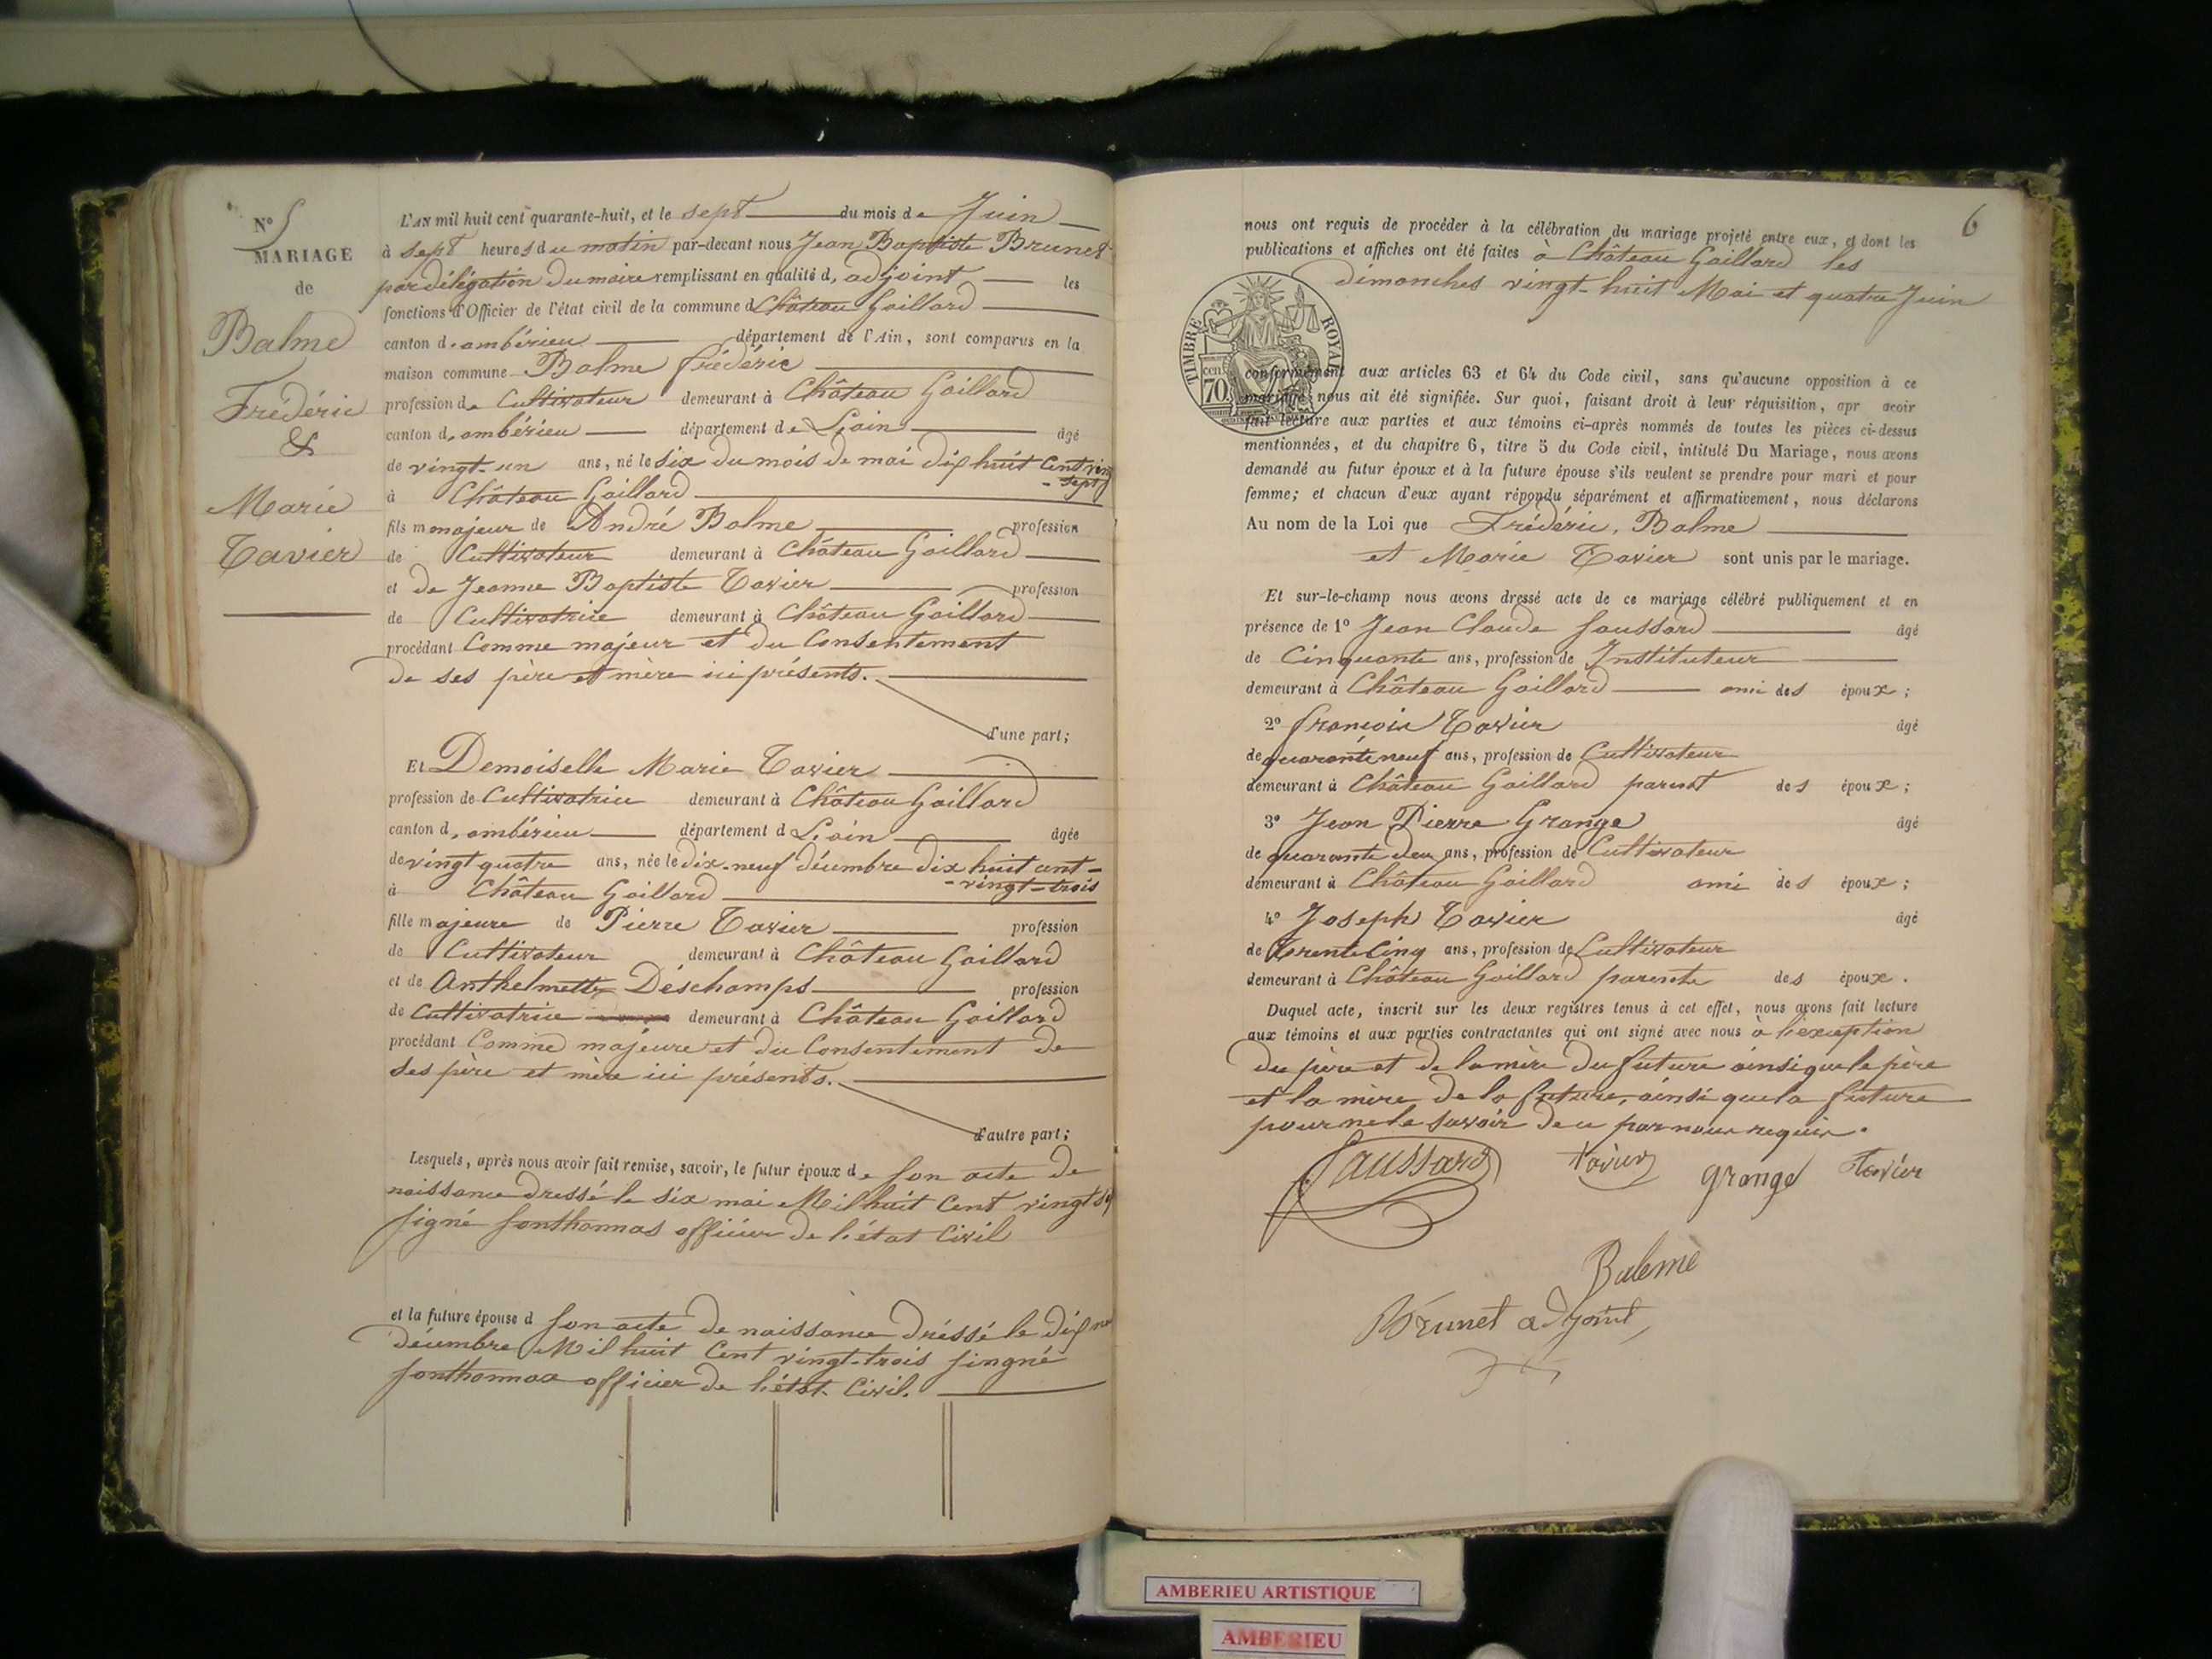 N° 5
MARIAGE
de
Balme
Frédéric
&
Marie
Tavier
L'AN mil huit cent quarante-huit, et le sept du mois de Juin
à sept heures du matin par-devant nous Jean Baptiste Brunet
par délégation du maire remplissant en qualité d, adjoint les
fonctions d'Officier de l'état civil de la commune d Château Gaillard
canton d, ambérieu département de l'Ain, sont comparus en la
maison commune Balme frédéric
profession de Cultivateur demeurant à Château Gaillard
canton d, ambérieu département de L'ain âgé
de vingt-un ans, né le six du mois de mai dix huit Cent vingt
- sept
à Château Gaillard
fils m majeur de André Balme profession
de Cultivateur demeurant à Château Gaillard
et de Jeanne Baptiste Tavier profession
de Cultivatrice demeurant à Château Gaillard
procédant Comme majeur et du Consentement
de ses père et mère ici présents.
d'une part;
Et Demoiselle Marie Tavier
profession de Cultivatrice demeurant à Château Gaillard
canton d, ambérieu département d L'ain âgée
de vingt quatre ans, née le dix-neuf décembre dix huit cent-
- vingt-trois
à Château Gaillard
fille majeure de Pierre Tavier profession
de Cultivateur demeurant à Château Gaillard
et de Anthelmette Déschamps profession
de Cultivatrice demeurant à Château Gaillard
procédant Comme majeure et du Consentement de
ses père et mère ici présents.
d'autre part;
Lesquels, après nous avoir fait remise, savoir, le futur époux de son acte de
naissance dressé le six mai Mil huit Cent vingt
signé officier de l'état Civil
et la future épouse d son acte de naissance dréssé le dix
décembre Mil huit Cent vingt-trois singné
officier de l'état Civil.
6
nous ont requis de procéder à la célébration du mariage projeté entre eux, et dont les
publications et affiches ont été faites à Château Gaillard les
dimanches vingt-huit Mai et quatre Juin
TIMBRE ROYAL
cen. 70
conformément aux articles 63 et 64 du Code civil, sans qu'aucune opposition à ce
mariage nous ait été signifiée. Sur quoi, faisant droit à leur réquisition, apr avoir
fait lecture aux parties et aux témoins ci-après nommés de toutes les pièces ci-dessus
mentionnées, et du chapitre 6, titre 5 du Code civil, intitulé Du Mariage, nous avons
demandé au futur époux et à la future épouse s'ils veulent se prendre pour mari et pour
femme; et chacun d'eux ayant répondu séparément et affirmativement, nous déclarons
Au nom de la Loi que Frédéric, Balme
et Marie Tavier sont unis par le mariage.
Et sur-le-champ nous avons dressé acte de ce mariage célébré publiquement et en
présence de 1° Jean Claude Saussard âgé
de Cinquante ans, profession de Instituteur
demeurant à Château Gaillard ami des époux;
2° françois Tavier âgé
de quarante neuf ans, profession de Cultivateur
demeurant à Château Gaillard parent des époux;
3° Jean Pierre Grange âgé
de quarante deux ans, profession de Cultivateur
demeurant à Château Gaillard ami des époux;
4° Joseph Tavier âgé
de trente Cinq ans, profession de Cultivateur
demeurant à Château Gaillard parente des époux.
Duquel acte, inscrit sur les deux registres tenus à cet effet, nous avons fait lecture
aux témoins et aux parties contractantes qui ont signé avec nous à l'exception
du père et de la mère du future ainsi que le père
et la mère de la future, ainsi que la future
pour ne le savoir de ce par nous requis.
Saussard Tavier Grange Tavier
Baleme
Brunet adjoint
AMBERIEU ARTISTIQUE
AMBERIEU